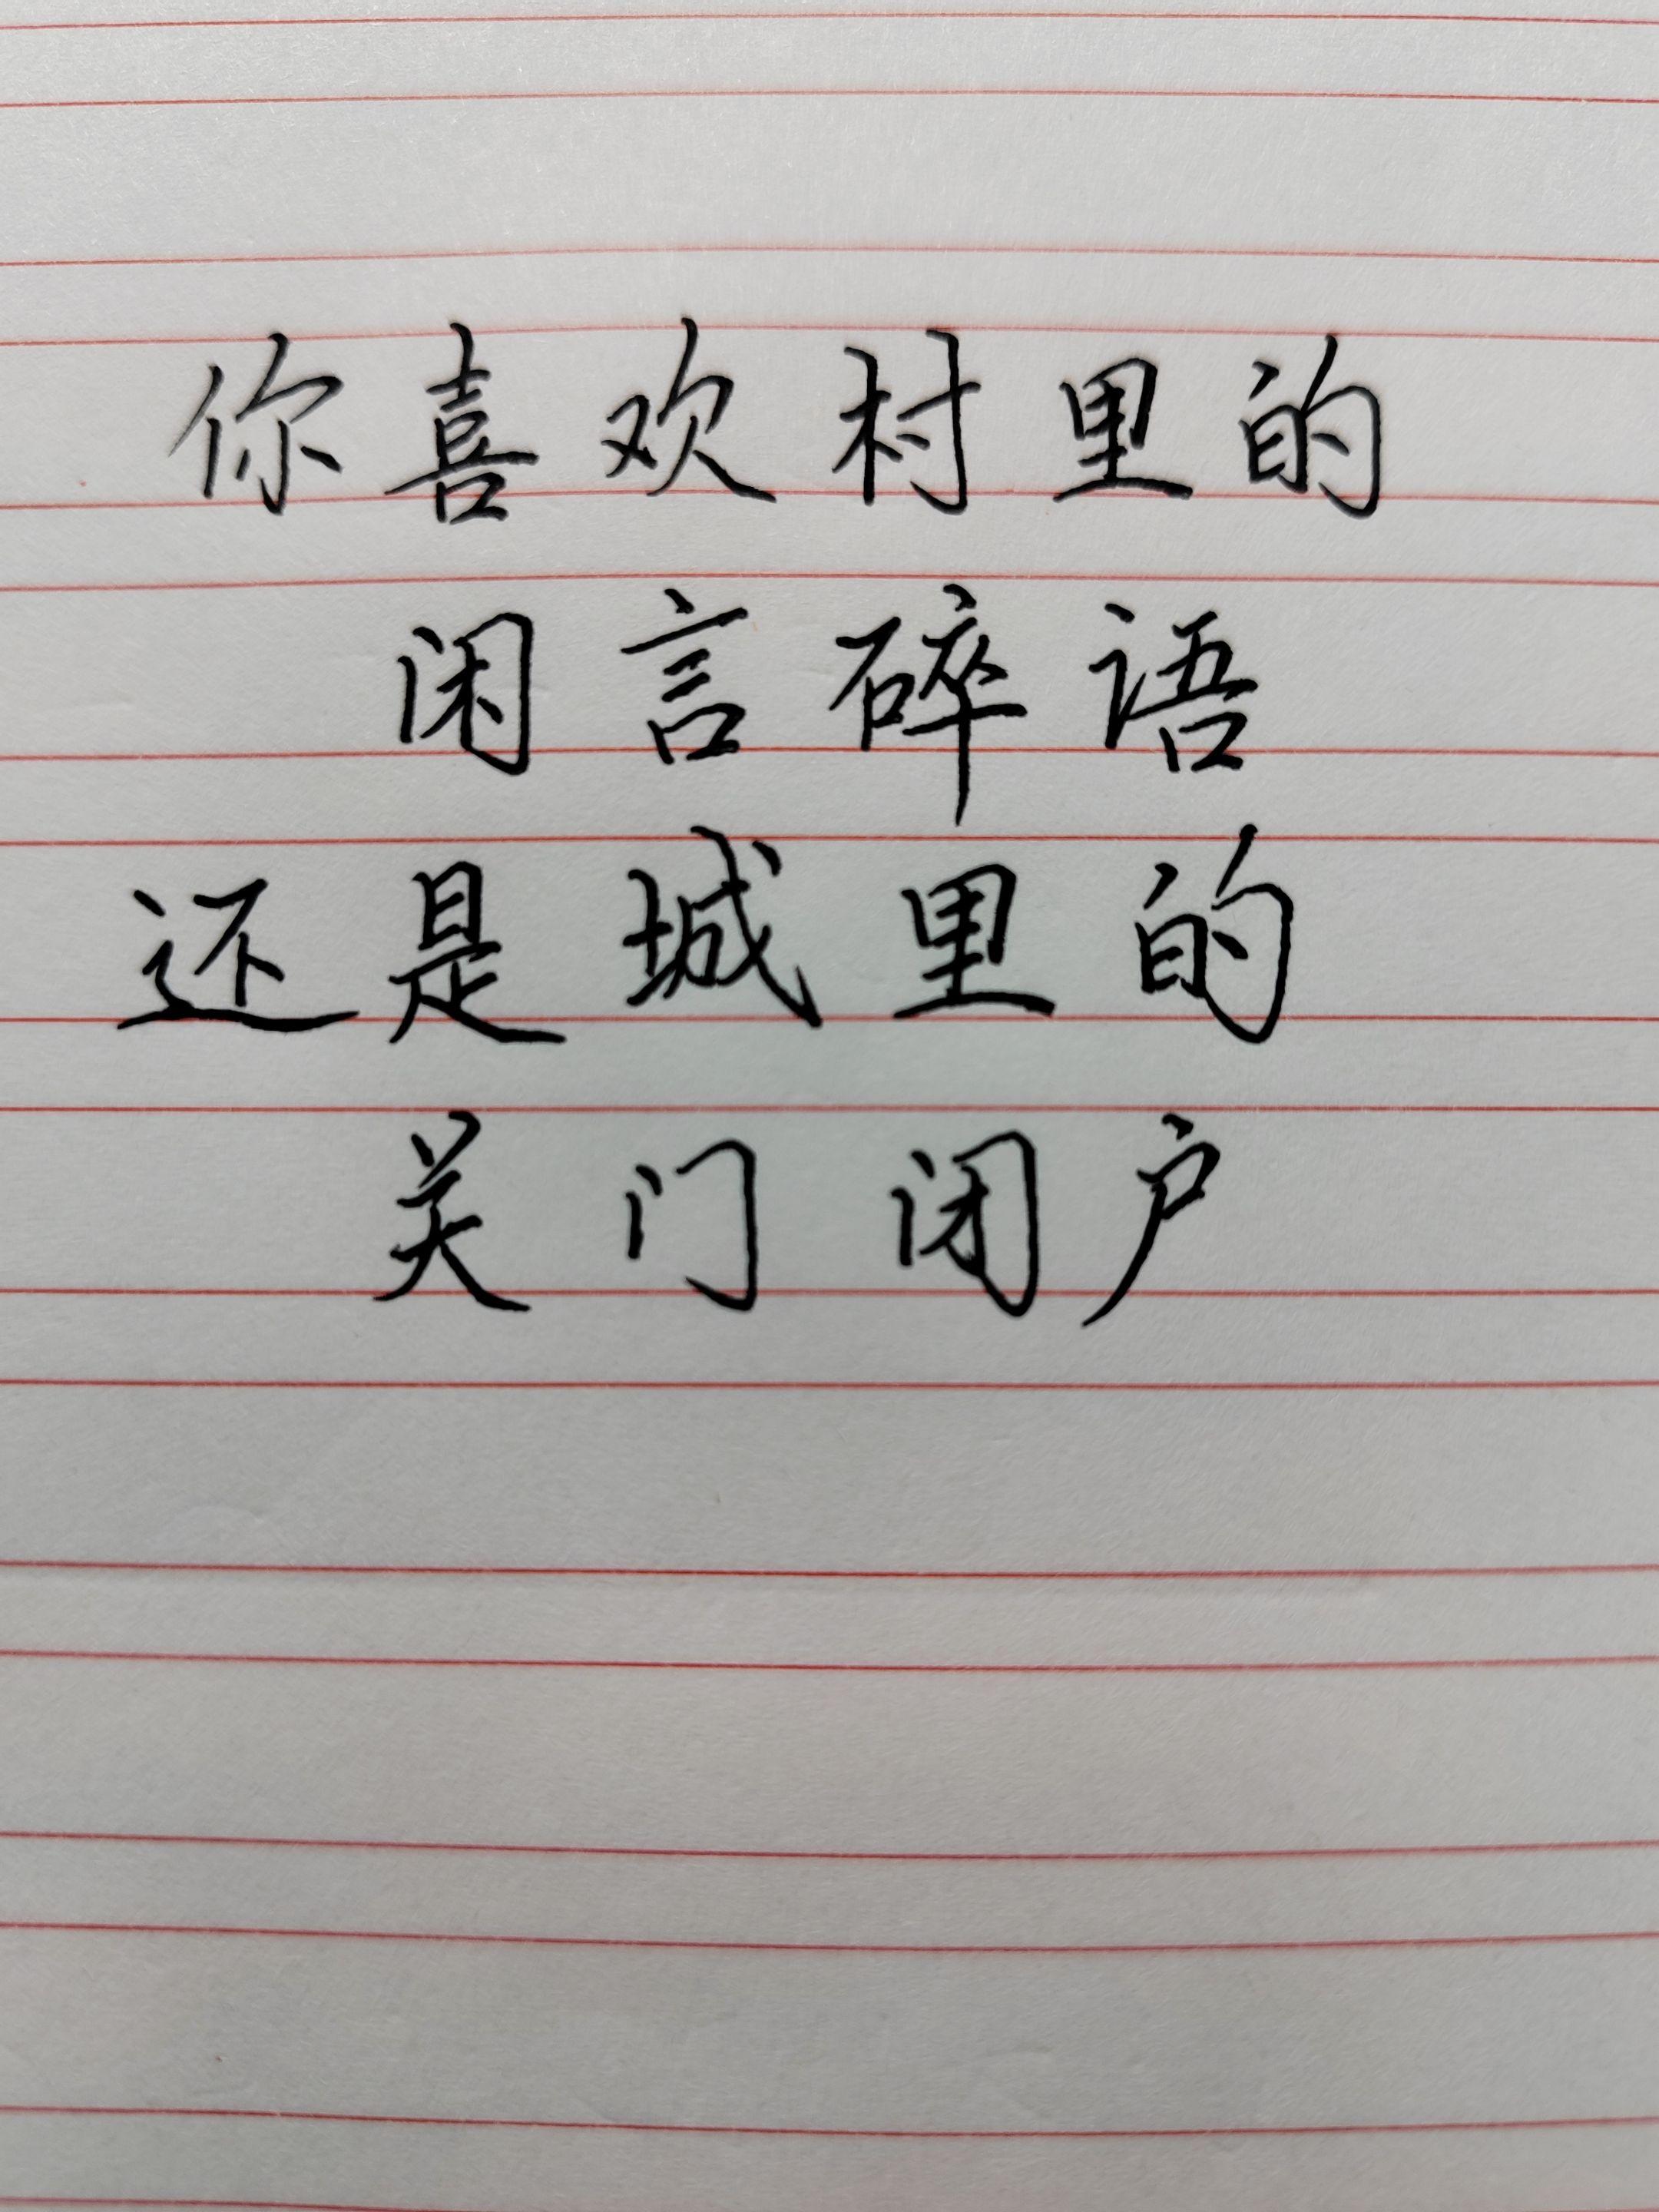 你喜欢村里的
闲言碎语
还是城里的
关门闭户